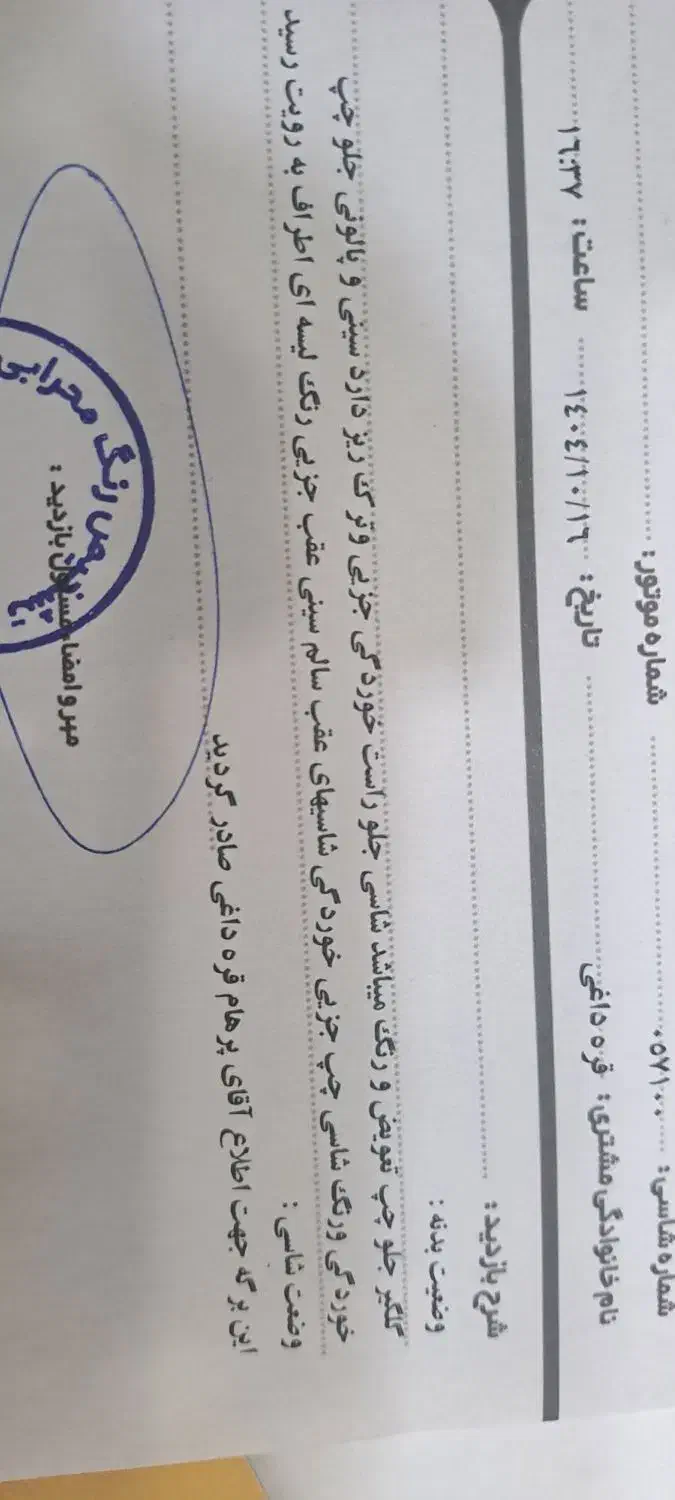 شماره شاسی: ۰۵۷۱۰۰ شماره موتور:
نام خانوادگی مشتری: قره داغی تاریخ: ۱٤۰٤/۱۰/۱٦ ساعت: ۱٦:۳۷
شرح بازدید:
وضعیت بدنه :
گلگیر جلو چپ تعویض و رنگ میباشد شاسی جلو راست خوردگی جزیی و ترک ریز دارد سینی و پالونی جلو چپ
خوردگی ورنگ شاسی چپ جزیی خوردگی شاسیهای عقب سالم سینی عقب جزیی رنگ لیسه ای اطراف به رویت رسید
وضعت شاسی :
این برگه جهت اطلاع آقای پرهام قره داغی صادر گردید
مهر و امضاء مسئول بازدید :
رنگ محرابی